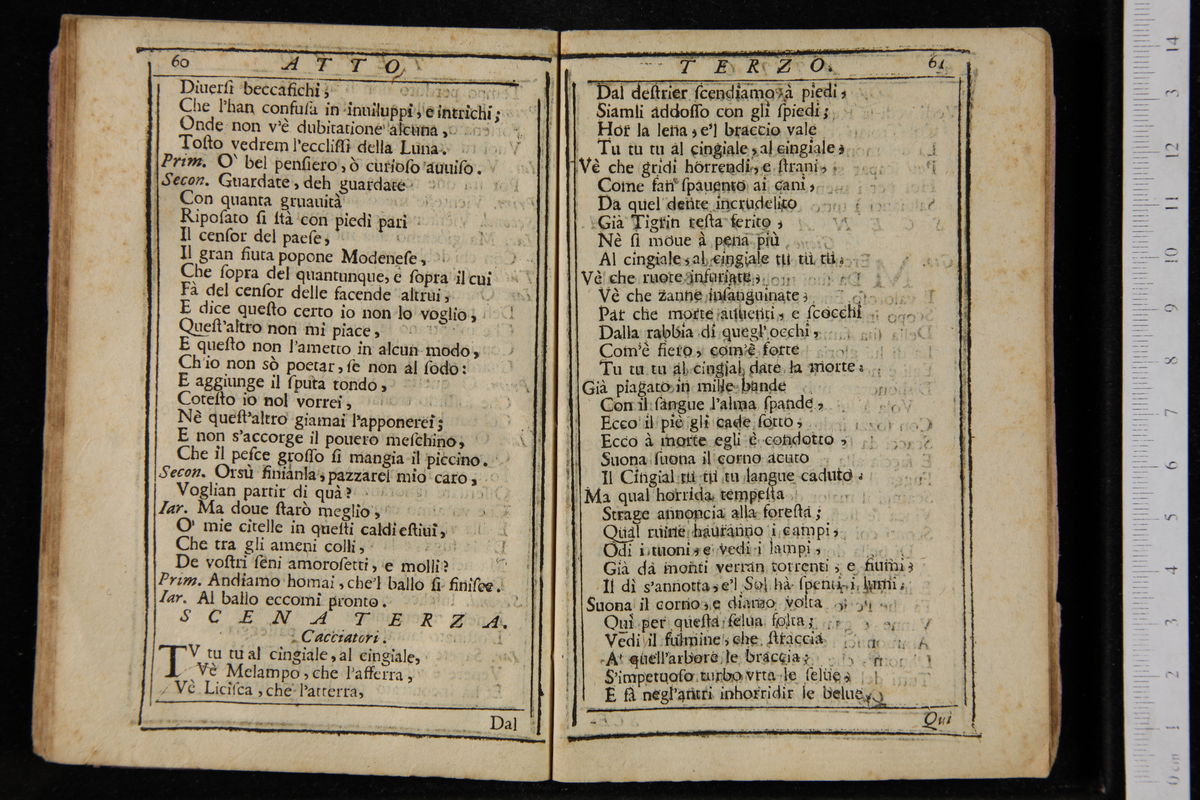 60 ATTO
Diuersi beccafichi,
Che l'han confusa in inuiluppi, e intrichi;
Onde non v'è dubitatione alcuna,
Tosto vedrem l'ecclissi della Luna.
Prim. O' bel pensiero, ò curioso auuiso.
Secon. Guardate, deh guardate
Con quanta grauità
Riposato si stà con piedi pari
Il censor del paese,
Il gran fiuta popone Modenese,
Che sopra del quantunque, e sopra il cui
Fà del censor delle facende altrui,
E dice questo certo io non lo voglio,
Quest'altro non mi piace,
E questo non l'ametto in alcun modo,
Ch'io non sò poetar, se non al sodo:
E aggiunge il sputa tondo,
Cotesto io nol vorrei,
Nè quest'altro giamai l'apponerei;
E non s'accorge il pouero meschino,
Che il pesce grosso si mangia il piccino.
Secon. Orsù finianla, pazzarel mio caro,
Voglian partir di quà?
Iar. Ma doue starò meglio,
O' mie citelle in questi caldi estiui,
Che tra gli ameni colli,
De vostri seni amorosetti, e molli?
Prim. Andiamo homai, che'l ballo si finisce.
Iar. Al ballo eccomi pronto.
SCENA TERZA.
Cacciatori.
TV tu tu al cingiale, al cingiale,
Vè Melampo, che l'afferra,
Vè Licisca, che l'atterra,
Dal
TERZO. 61
Dal destrier scendiamo à piedi,
Siamli addosso con gli spiedi;
Hor la lena, e'l braccio vale
Tu tu tu al cingiale, al cingiale;
Vè che gridi horrendi, e strani,
Come fan spauento ai cani,
Da quel dente incrudelito
Già Tigrin resta ferito,
Nè si moue à pena più
Al cingiale, al cingiale tu tu tu,
Vè che ruote infuriate,
Vè che zanne insanguinate,
Par che morte auuenti, e scocchi
Dalla rabbia di quegl'occhi,
Com'è fiero, com'è forte
Tu tu tu al cingial date la morte.
Già piagato in mille bande
Con il sangue l'alma spande,
Ecco il piè gli cade sotto,
Ecco à morte egli è condotto,
Suona suona il corno acuto
Il Cingial tu tu tu langue caduto.
Ma qual horrida tempesta
Strage annoncia alla foresta;
Qual ruine hauranno i campi,
Odi i tuoni, e vedi i lampi,
Già da monti verran torrenti, e fiumi;
Il dì s'annotta, e'l Sol hà spenti i lumi.
Suona il corno, e diamo volta
Qui per questa selua folta;
Vedi il fulmine, che straccia
A' quell'arbore le braccia;
S'impetuoso turbo vrta le selue,
E fà negl'antri inhorridir le belue,
Qui